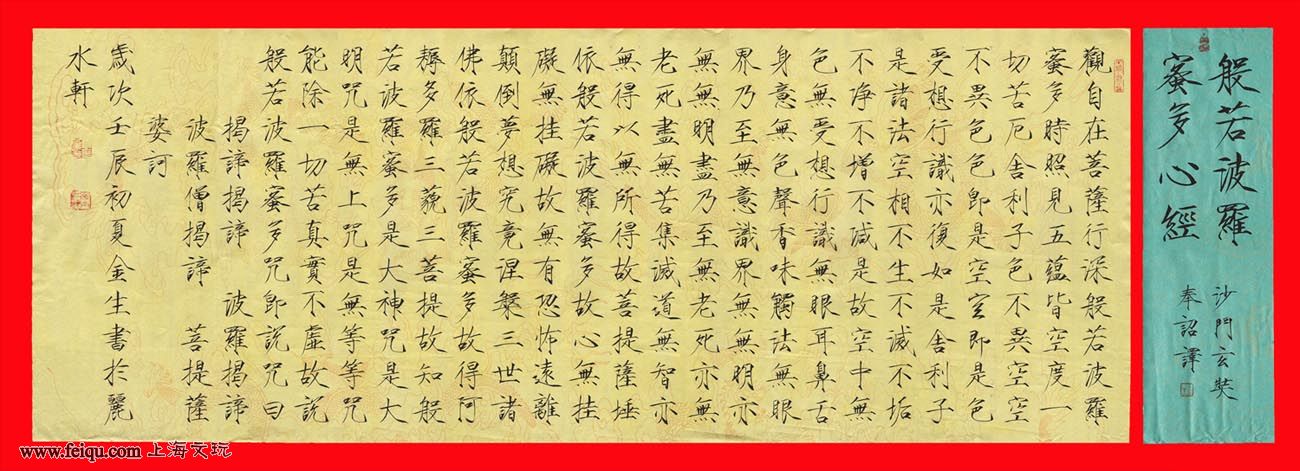 般若波羅
蜜多心經
沙門玄奘
奉詔譯
觀自在菩薩行深般若波羅
蜜多時照見五蘊皆空度一
切苦厄舍利子色不異空空
不異色色即是空空即是色
受想行識亦復如是舍利子
是諸法空相不生不滅不垢
不淨不增不減是故空中無
色無受想行識無眼耳鼻舌
身意無色聲香味觸法無眼
界乃至無意識界無無明亦
無無明盡乃至無老死亦無
老死盡無苦集滅道無智亦
無得以無所得故菩提薩埵
依般若波羅蜜多故心無挂
礙無挂礙故無有恐怖遠離
顛倒夢想究竟涅槃三世諸
佛依般若波羅蜜多故得阿
耨多羅三藐三菩提故知般
若波羅蜜多是大神咒是大
明咒是無上咒是無等等咒
能除一切苦真實不虛故說
般若波羅蜜多咒即說咒曰
揭諦揭諦 波羅揭諦
波羅僧揭諦 菩提薩
婆訶
歲次壬辰初夏金生書於麗
水軒
www.feiqu.com 上海文玩